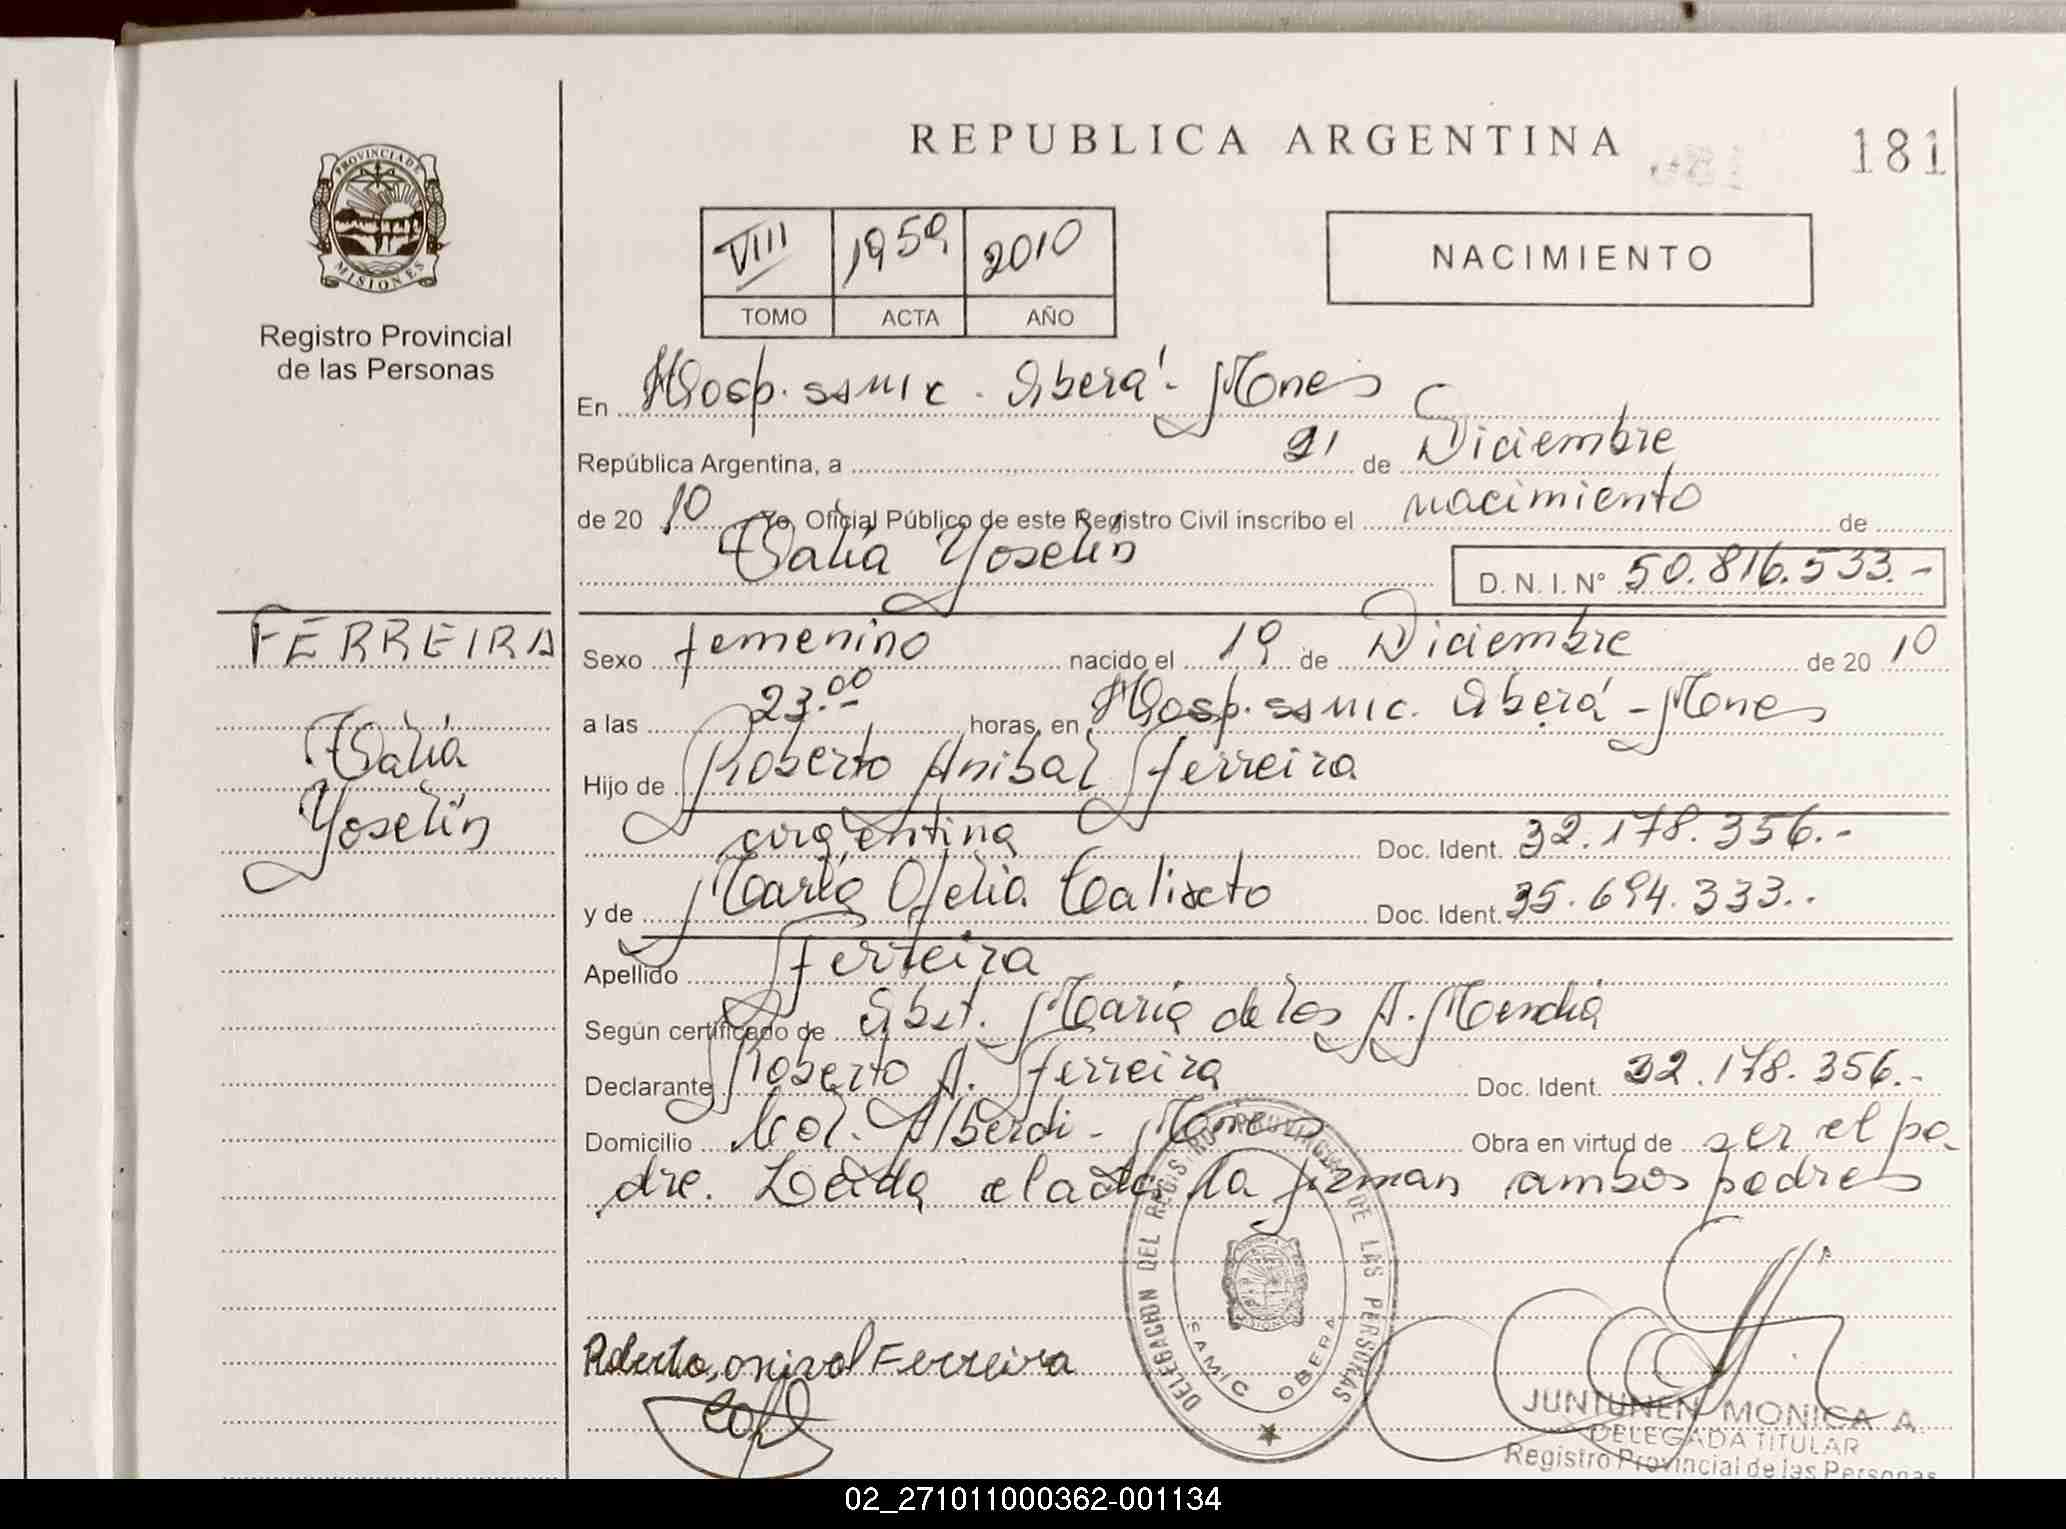 REPUBLICA ARGENTINA
181
PROVINCIA DE
MISIONES
Registro Provincial
de las Personas
VIII 1959 2010
TOMO ACTA AÑO
NACIMIENTO
En Hosp. SAMIC. Oberá - Mones
República Argentina, a 21 de Diciembre
de 20 10 Yo Oficial Público de este Registro Civil inscribo el nacimiento de
Talía Yoselín
D. N. I. N° 50.816.533.-
FERREIRA
Talía
Yoselín
Sexo femenino nacido el 19 de Diciembre de 20 10
a las 23.00 horas, en Hosp. SAMIC. Oberá - Mones
Hijo de Roberto Anibal Ferreira
argentina Doc. Ident. 32.178.356.-
y de María Ofelia Calixto Doc. Ident. 35.694.333..
Apellido Ferreira
Según certificado de Obst. María de los A.
Declarante Roberto A. Ferreira Doc. Ident. 32.178.356.-
Domicilio Col. Alberdi - Mones Obra en virtud de ser el pa
dre. Leída el acta la firman ambos padres
DELEGACION DEL REGISTRO PROVINCIAL DE LAS PERSONAS
SAMIC OBERA
Roberto, anival Ferreira
JUNTUNEN MONICA A.
DELEGADA TITULAR
Registro Provincial de las Personas
02_271011000362-001134